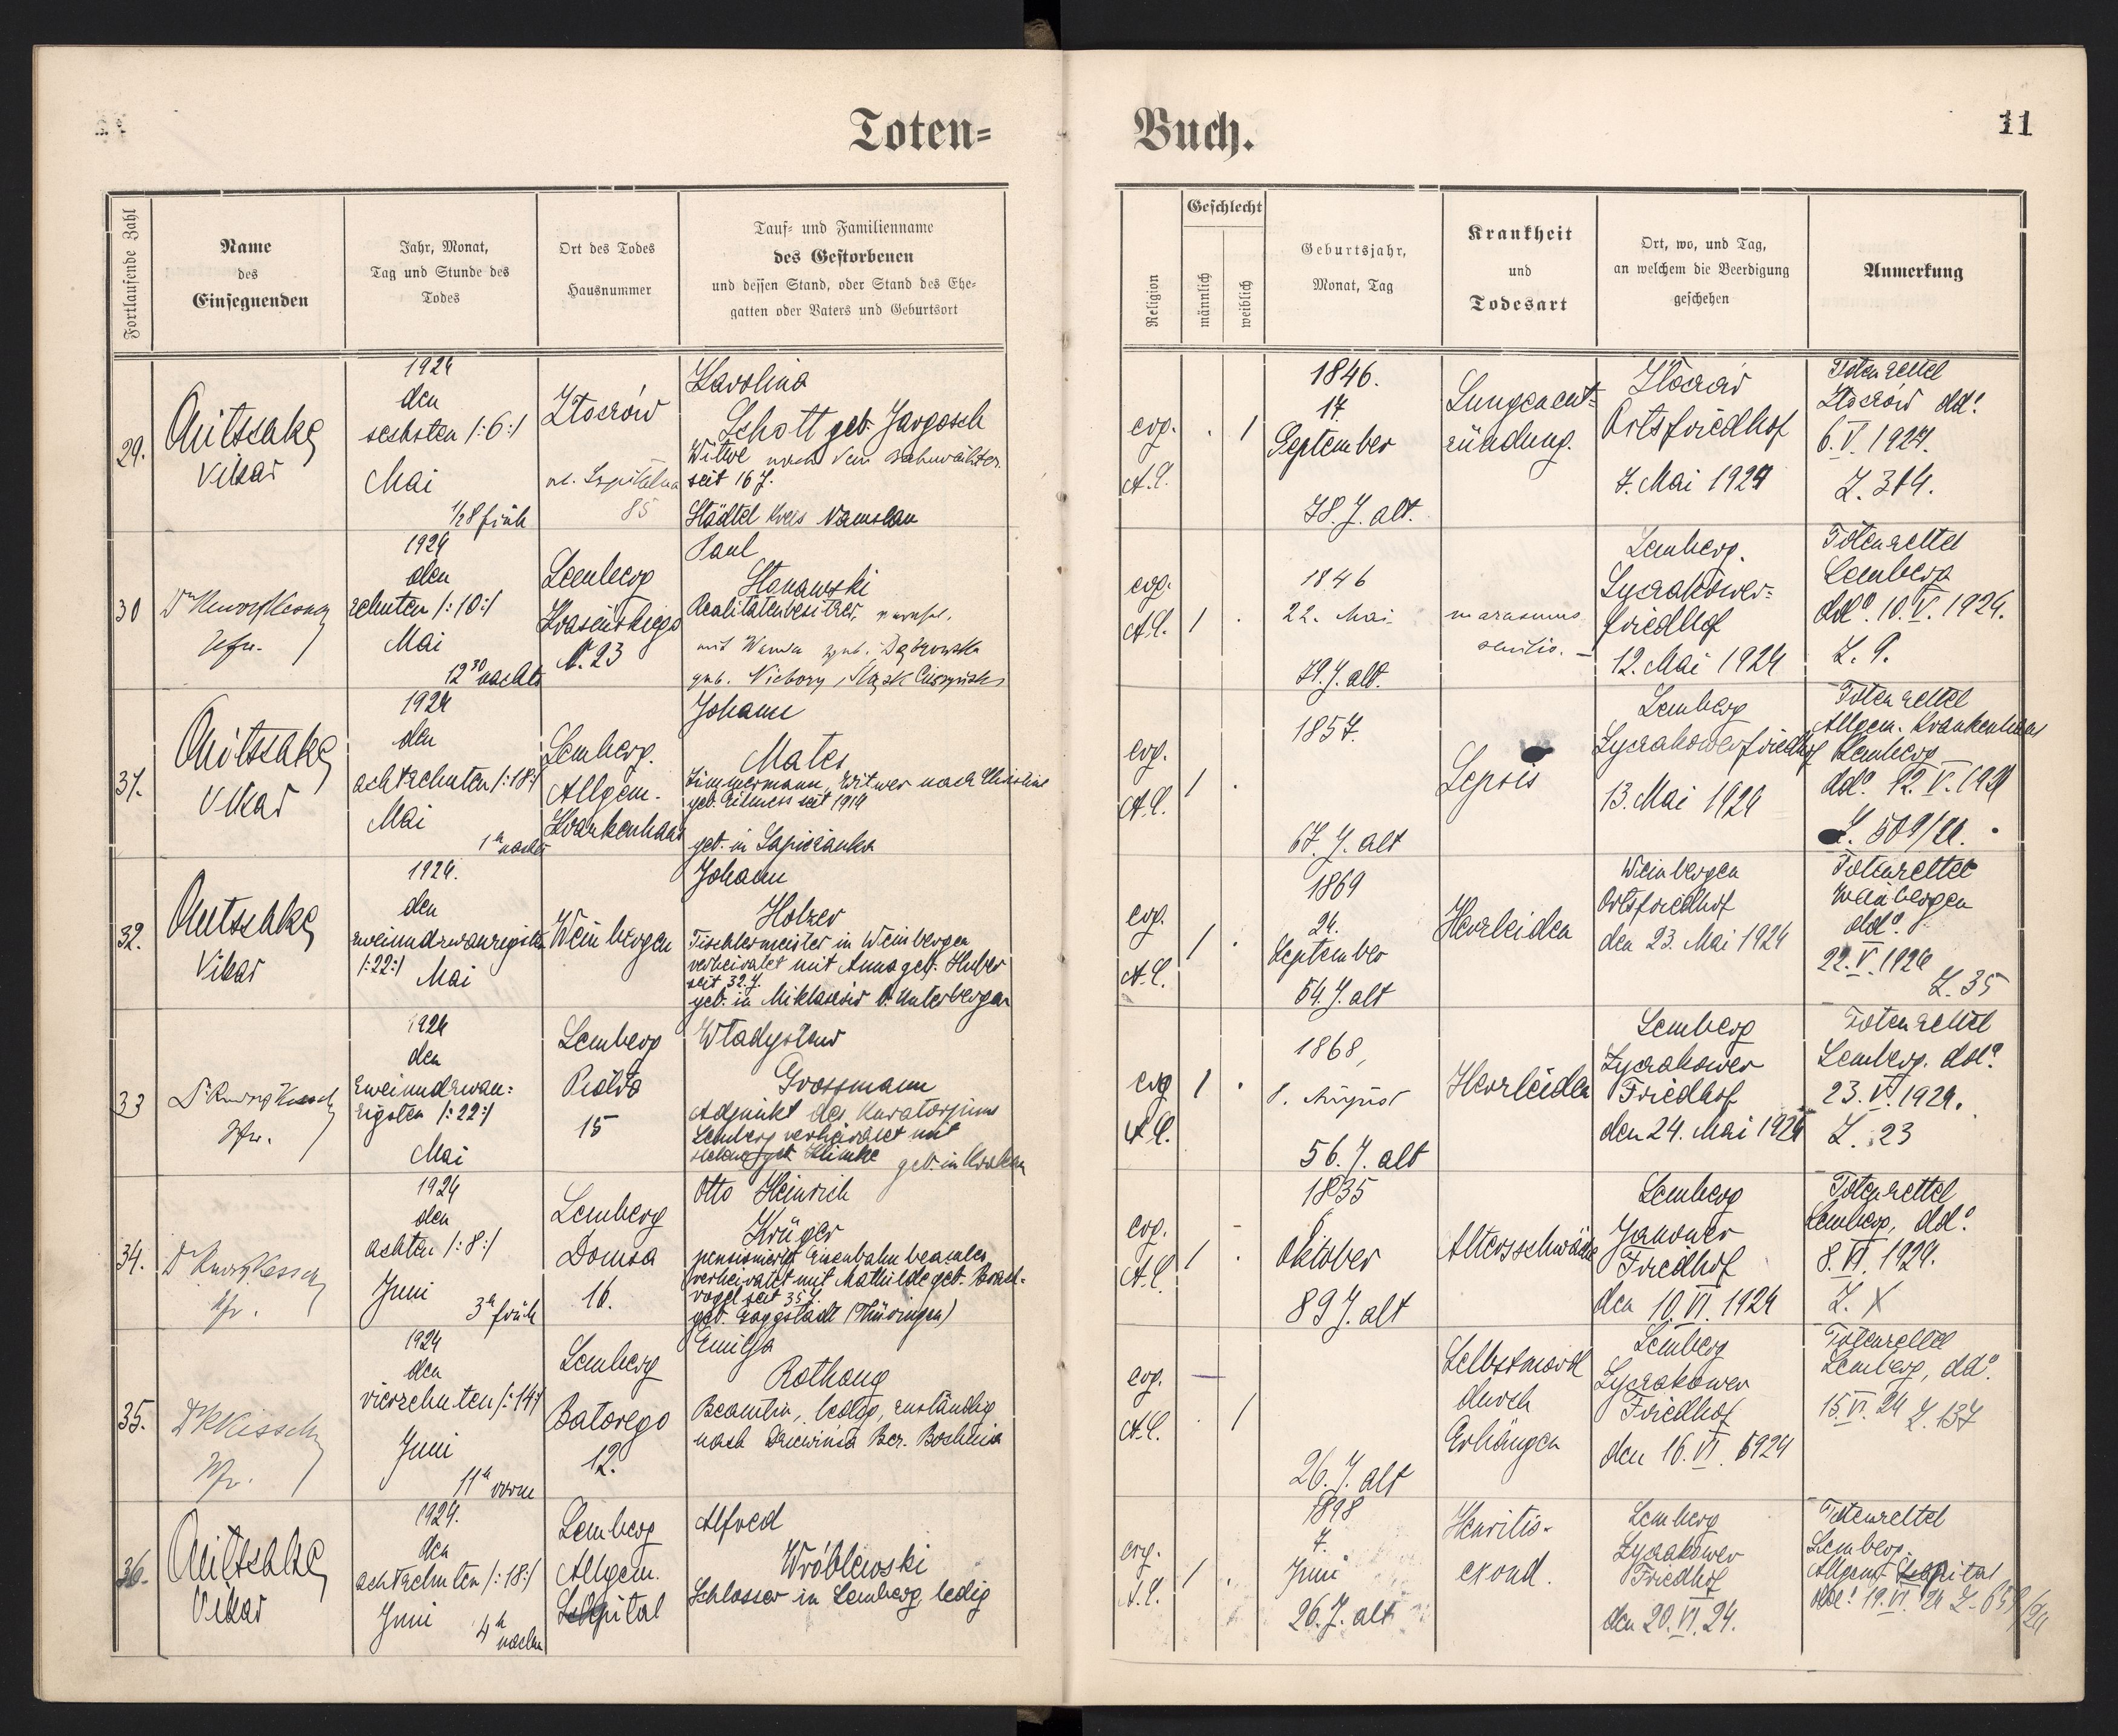 Toten-
Buch.
11
Fortlaufende Zahl
Name
des
Einsegnenden
Jahr, Monat,
Tag und Stunde des
Todes
Ort des Todes
Hausnummer
Tauf- und Familienname
des Gestorbenen
und dessen Stand, oder Stand des Ehe-
gatten oder Vaters und Geburtsort
Religion
Geschlecht
männlich
weiblich
Geburtsjahr,
Monat, Tag
Krankheit
und
Todesart
Ort, wo, und Tag,
an welchem die Beerdigung
geschehen
Anmerkung
29.
Vikar
1924
den
sechsten /:6:/
Mai
1/2 8 früh
Złoczów
85
Karolina
Schott geb. Jargosch
Witwe nach dem Bahnwächter
seit 16 J.
Städtel Kreis Namslau
evg.
A.C.
. /
1846.
17.
September
78. J. alt.
Lungenent-
zündung.
Złoczów
Ortsfriedhof
7. Mai 1924
Totenzettel
Złoczów dd:
6. V. 1924.
Z. 314.
30
Pfr.
1924
den
zehnten /:10:/
Mai
12 30 nachts
Lemberg
Krasińskiego
N. 23
Paul
Realitätenbesitzer,
mit Wanda geb. Dąbrowska
evg.
A.C.
/ .
1846
22. Mai
79. J. alt.
marasmus
senilis.
Lemberg.
Lyczakower-
friedhof
12. Mai 1924
Totenzettel
Lemberg
dd. 10. V. 1924.
Z. 9.
31.
Vikar
1924
den
achtzehnten /:18:/
Mai
1 h nachts
Lemberg.
Allgem.
Krankenhaus
Johann
Mates
Zimmermann, Witwer nach Christine
seit 1914
geb. in Sapieżanka
evg.
A.C.
/ .
1857.
67. J. alt
Sepsis
Lemberg
Lyczakowerfriedhof
13. Mai 1924
Totenzettel
Allgem. Krankenhaus
Lemberg
dd. 12. V. 1924
32.
Vikar
1924.
den
zweiundzwanzigsten
/:22:/ Mai
Weinbergen
Johann
Holzer
Tischlermeister in Weinbergen
verheiratet mit Anna geb. Huber
seit 32. J.
geb. in Miklaszów b. Unterbergen
evg.
A.C.
/ .
1869
24.
September
54. J. alt
Herzleiden
Weinbergen
Ortsfriedhof
den 23. Mai 1924
Totenzettel
Weinbergen
dd.
22. V. 1924
Z. 35
33
Pfr.
1924
den
zweiundzwan-
zigsten /:22:/
Mai
Lemberg
15
Władysław
Grossmann
Adjunkt des Kuratoriums
Lemberg verheiratet mit
geb. Klimke geb. in Krakau
evg
A.C.
/ .
1868,
8. August
56. J. alt
Herzleiden
Lemberg
Lyczakower
Friedhof
den 24. Mai 1924
Totenzettel
Lemberg. dd.
23. V. 1924.
Z. 23
34.
Pfr.
1924
den
achten /:8:/
Juni
3 h früh
Lemberg
Domsa
16.
Otto Heinrich
Krüger
pensionierter Eisenbahnbeamter
verheiratet mit Mathilde geb. Brach-
vogel seit 35 J.
geb. Gaggstadt (Thüringen)
evg.
A.C.
/ .
1835
Oktober
89 J. alt
Altersschwäche
Lemberg
Janower
Friedhof
den 10. VI. 1924
Totenzettel
Lemberg, dd.
8. VI. 1924.
Z. X
35.
Pfr.
1924
den
vierzehnten /:14:/
Juni
11 h vorm
Lemberg
Batorego
12.
Emilja
Rothaug
Beamtin, ledig, zuständig
nach Bez. Bochnia
evg.
A.C.
. /
26. J. alt
Selbstmord
durch
Erhängen
Lemberg
Lyczakower
Friedhof
den 16. VI. 1924
Totenzettel
Lemberg, dd.
15. VI. 24 Z. 137
36.
Vikar
1924.
den
achtzehnten /:18:/
Juni
4 h nachm
Lemberg
Allgem.
Spital
Alfred
Wróblewski
Schlosser in Lemberg, ledig
evg.
A.C.
/ .
1898
7.
Juni
26. J. alt
Lemberg
Lyczakower
Friedhof
den 20. VI. 24.
Totenzettel
Lemberg.
Allgem. Spital
dd. 19. VI. 24